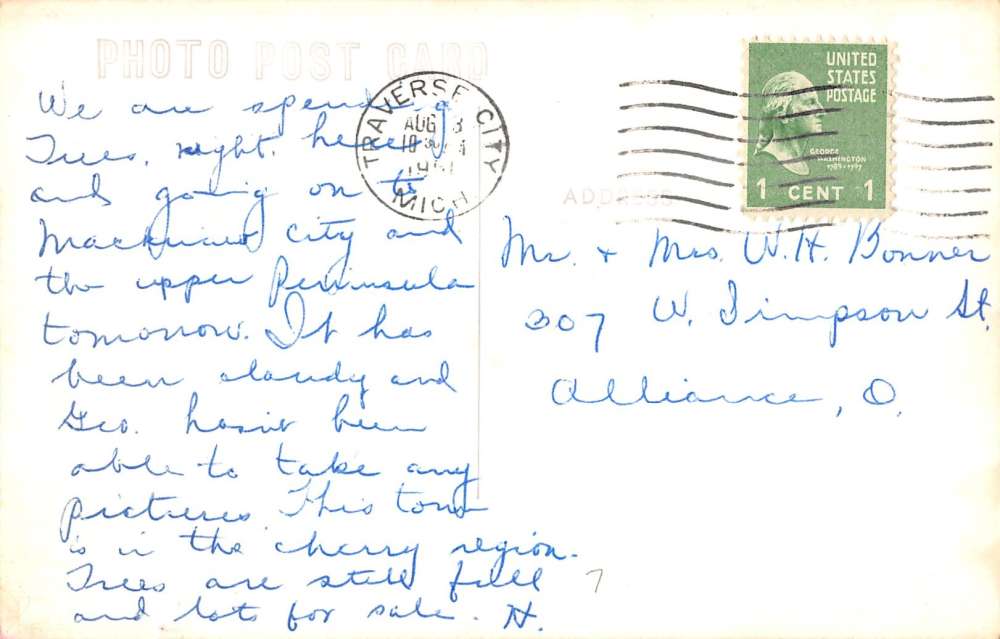 PHOTO POST CARD
We are spending
Tues. night here
and going on to
Mackinaw City and
the upper Peninsula
tomorrow. It has
been cloudy and
Geo. hasn't been
able to take any
pictures. This town
is in the cherry region.
Trees are still full
and lots for sale. H.
TRAVERSE CITY
AUG
MICH
UNITED
STATES
POSTAGE
GEORGE
WASHINGTON
1789-1797
1 CENT 1
ADDRESS
Mr. + Mrs. W. H. Bonner
307 W. Simpson St.
Alliance, O.
7